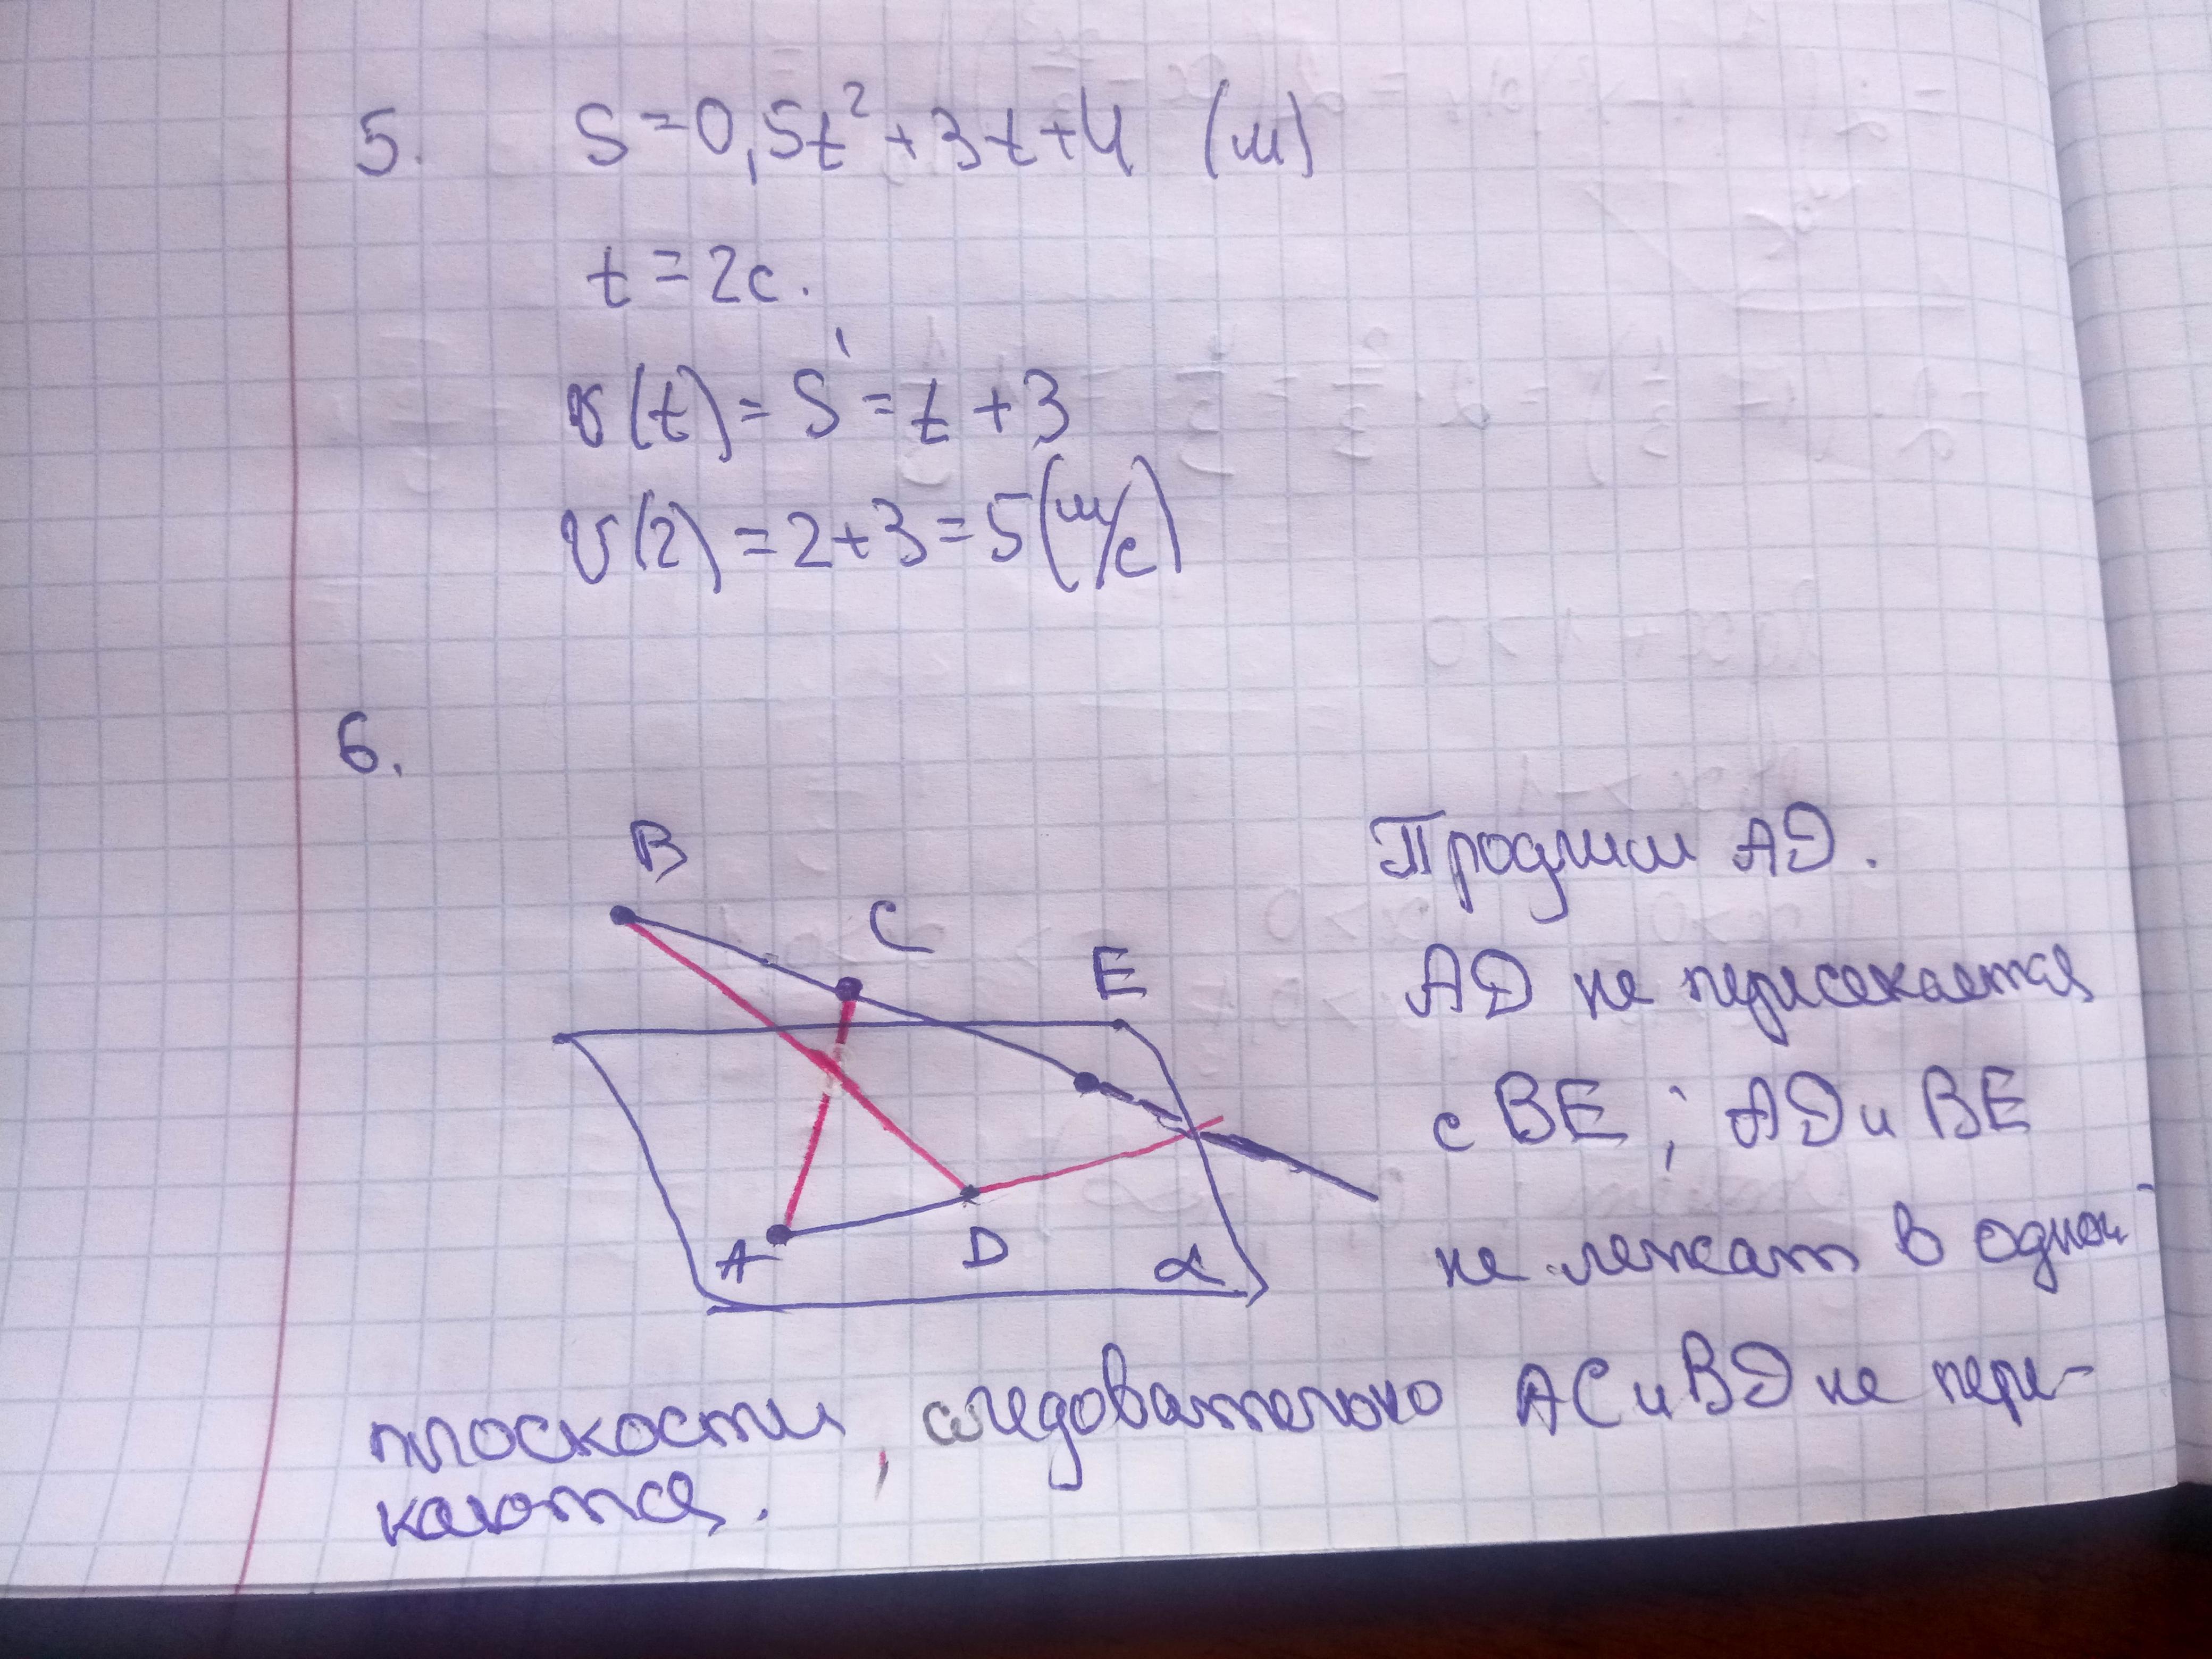 5. S=0,5t²+3t+4 (м)
t=2с.
v(t)=S'=t+3
v(2)=2+3=5(м/с)
6.
B
C
E
A
D
α
Продлим AD.
AD не пересекается
с BE; AD и BE
не лежат в одной
плоскости, следовательно AC и BD не пере-
каются.